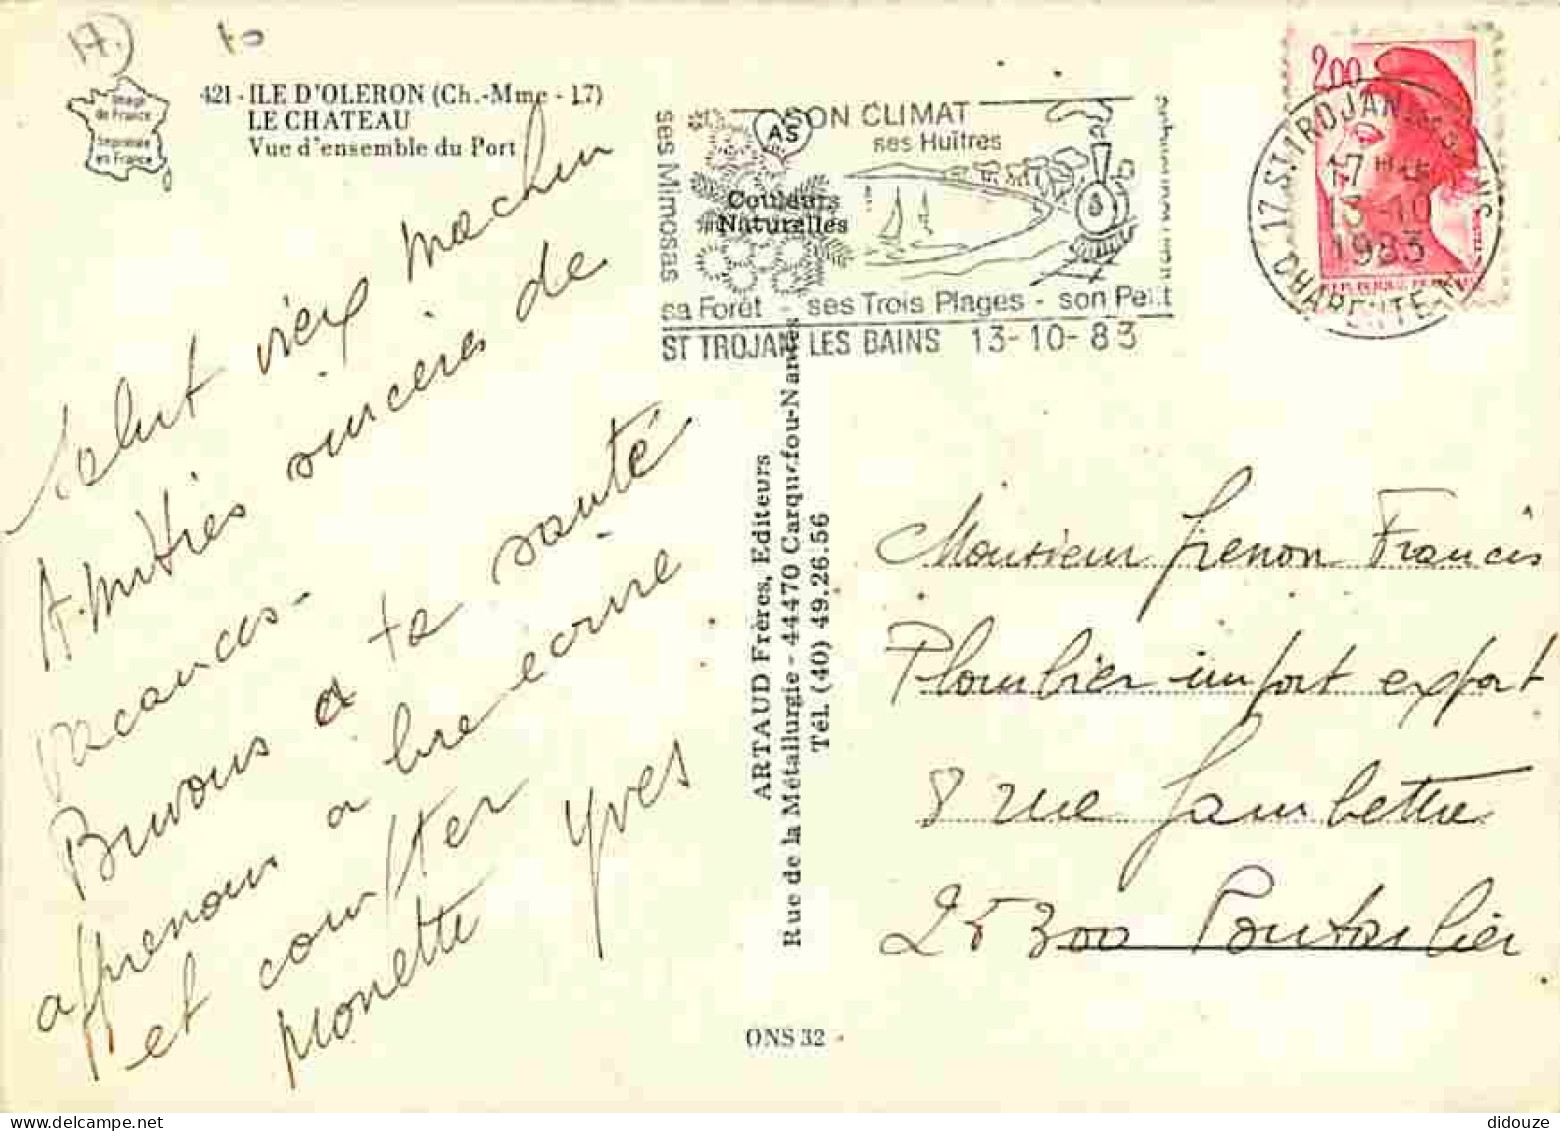 17.
421 - ILE D'OLERON (Ch.-Mme - 17)
LE CHATEAU
Vue d'ensemble du Port
Image
de France
Imprimée
en France
Salut vieux machin
Amitiés sincères de
vacances -
Buvons a ta santé
apprenons a lire ecrire
et compter
Monette Yves
ARTAUD Frères, Editeurs
Rue de la Métallurgie - 44470 Carquefou-Nantes
Tél. (40) 49.26.56
ONS 32
SON CLIMAT
ses Huîtres
ses Mimosas
AS
Couleurs
Naturelles
sa Forêt - ses Trois Plages - son Petit
ST TROJAN LES BAINS 13-10-83
2,00
REPUBLIQUE FRANCAISE
17 ST TROJAN LES BAINS
17H
13-10
1983
CHARENTE-M
Monsieur Grenon Francis
Plombier import export
8 rue Gambetta
25300 Pontarlier
didouze